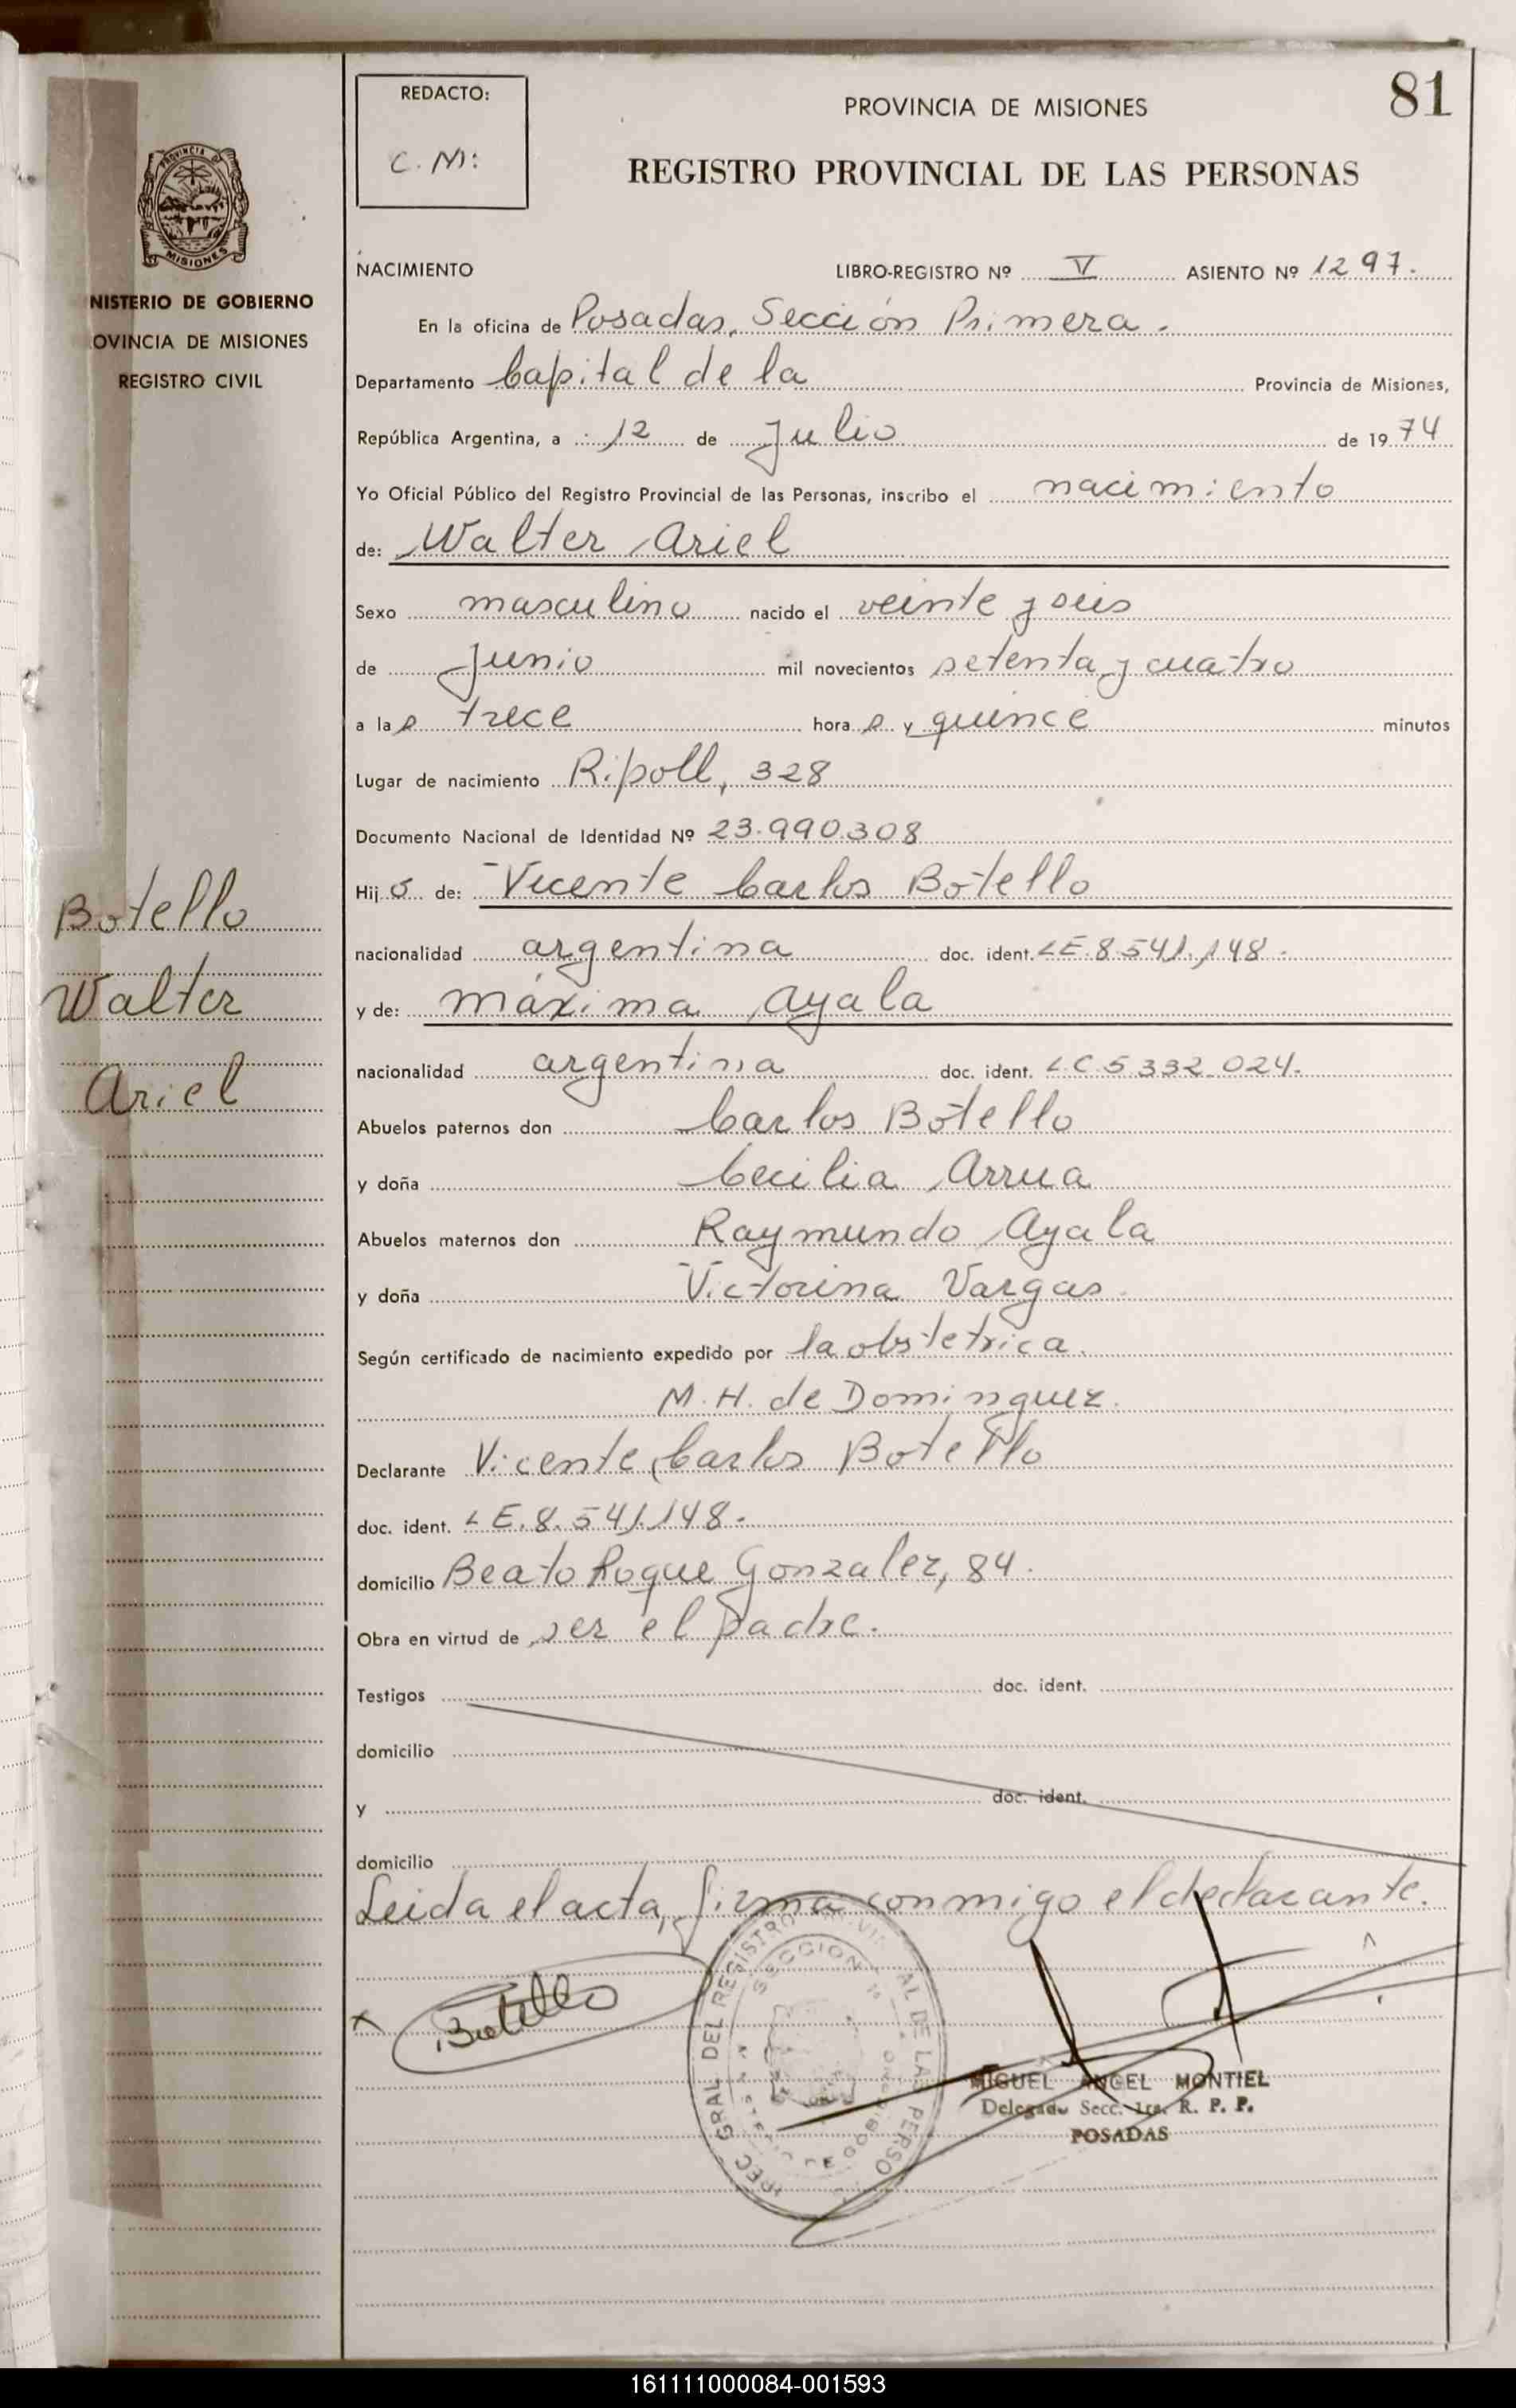 81
REDACTO:
C. M:
PROVINCIA DE MISIONES
REGISTRO PROVINCIAL DE LAS PERSONAS
MISIONES
NISTERIO DE GOBIERNO
OVINCIA DE MISIONES
REGISTRO CIVIL
NACIMIENTO LIBRO-REGISTRO Nº V ASIENTO Nº 1297.
En la oficina de Posadas, Sección Primera.
Departamento Capital de la Provincia de Misiones,
República Argentina, a 12 de Julio de 1974
Yo Oficial Público del Registro Provincial de las Personas, inscribo el nacimiento
de: Walter Ariel
Sexo masculino nacido el veinte y seis
de Junio mil novecientos setenta y cuatro
a las trece horas y quince minutos
Lugar de nacimiento Ripoll, 328
Documento Nacional de Identidad Nº 23.990.308
Hijo de: Vicente Carlos Botello
nacionalidad argentina doc. ident. LE.8.541.148.
y de: máxima ayala
nacionalidad argentina doc. ident. LC.5.332.024.
Abuelos paternos don Carlos Botello
y doña Cecilia Arrua
Abuelos maternos don Raymundo Ayala
y doña Victorina Vargas.
Según certificado de nacimiento expedido por la obstetrica.
M. H. de Dominguez.
Declarante Vicente Carlos Botello
doc. ident. LE.8.541.148.
domicilio Beato Roque Gonzalez, 84.
Obra en virtud de ser el padre.
Testigos doc. ident.
domicilio
y doc. ident.
domicilio
Leida el acta, firma conmigo el declarante.
Botello
Walter
Ariel
x Botello
GRAL DEL REGISTRO AL DE LAS PERSO
SECCION
MIGUEL ANGEL MONTIEL
Delegado Secc. 1ra. R. P. P.
POSADAS
161111000084-001593